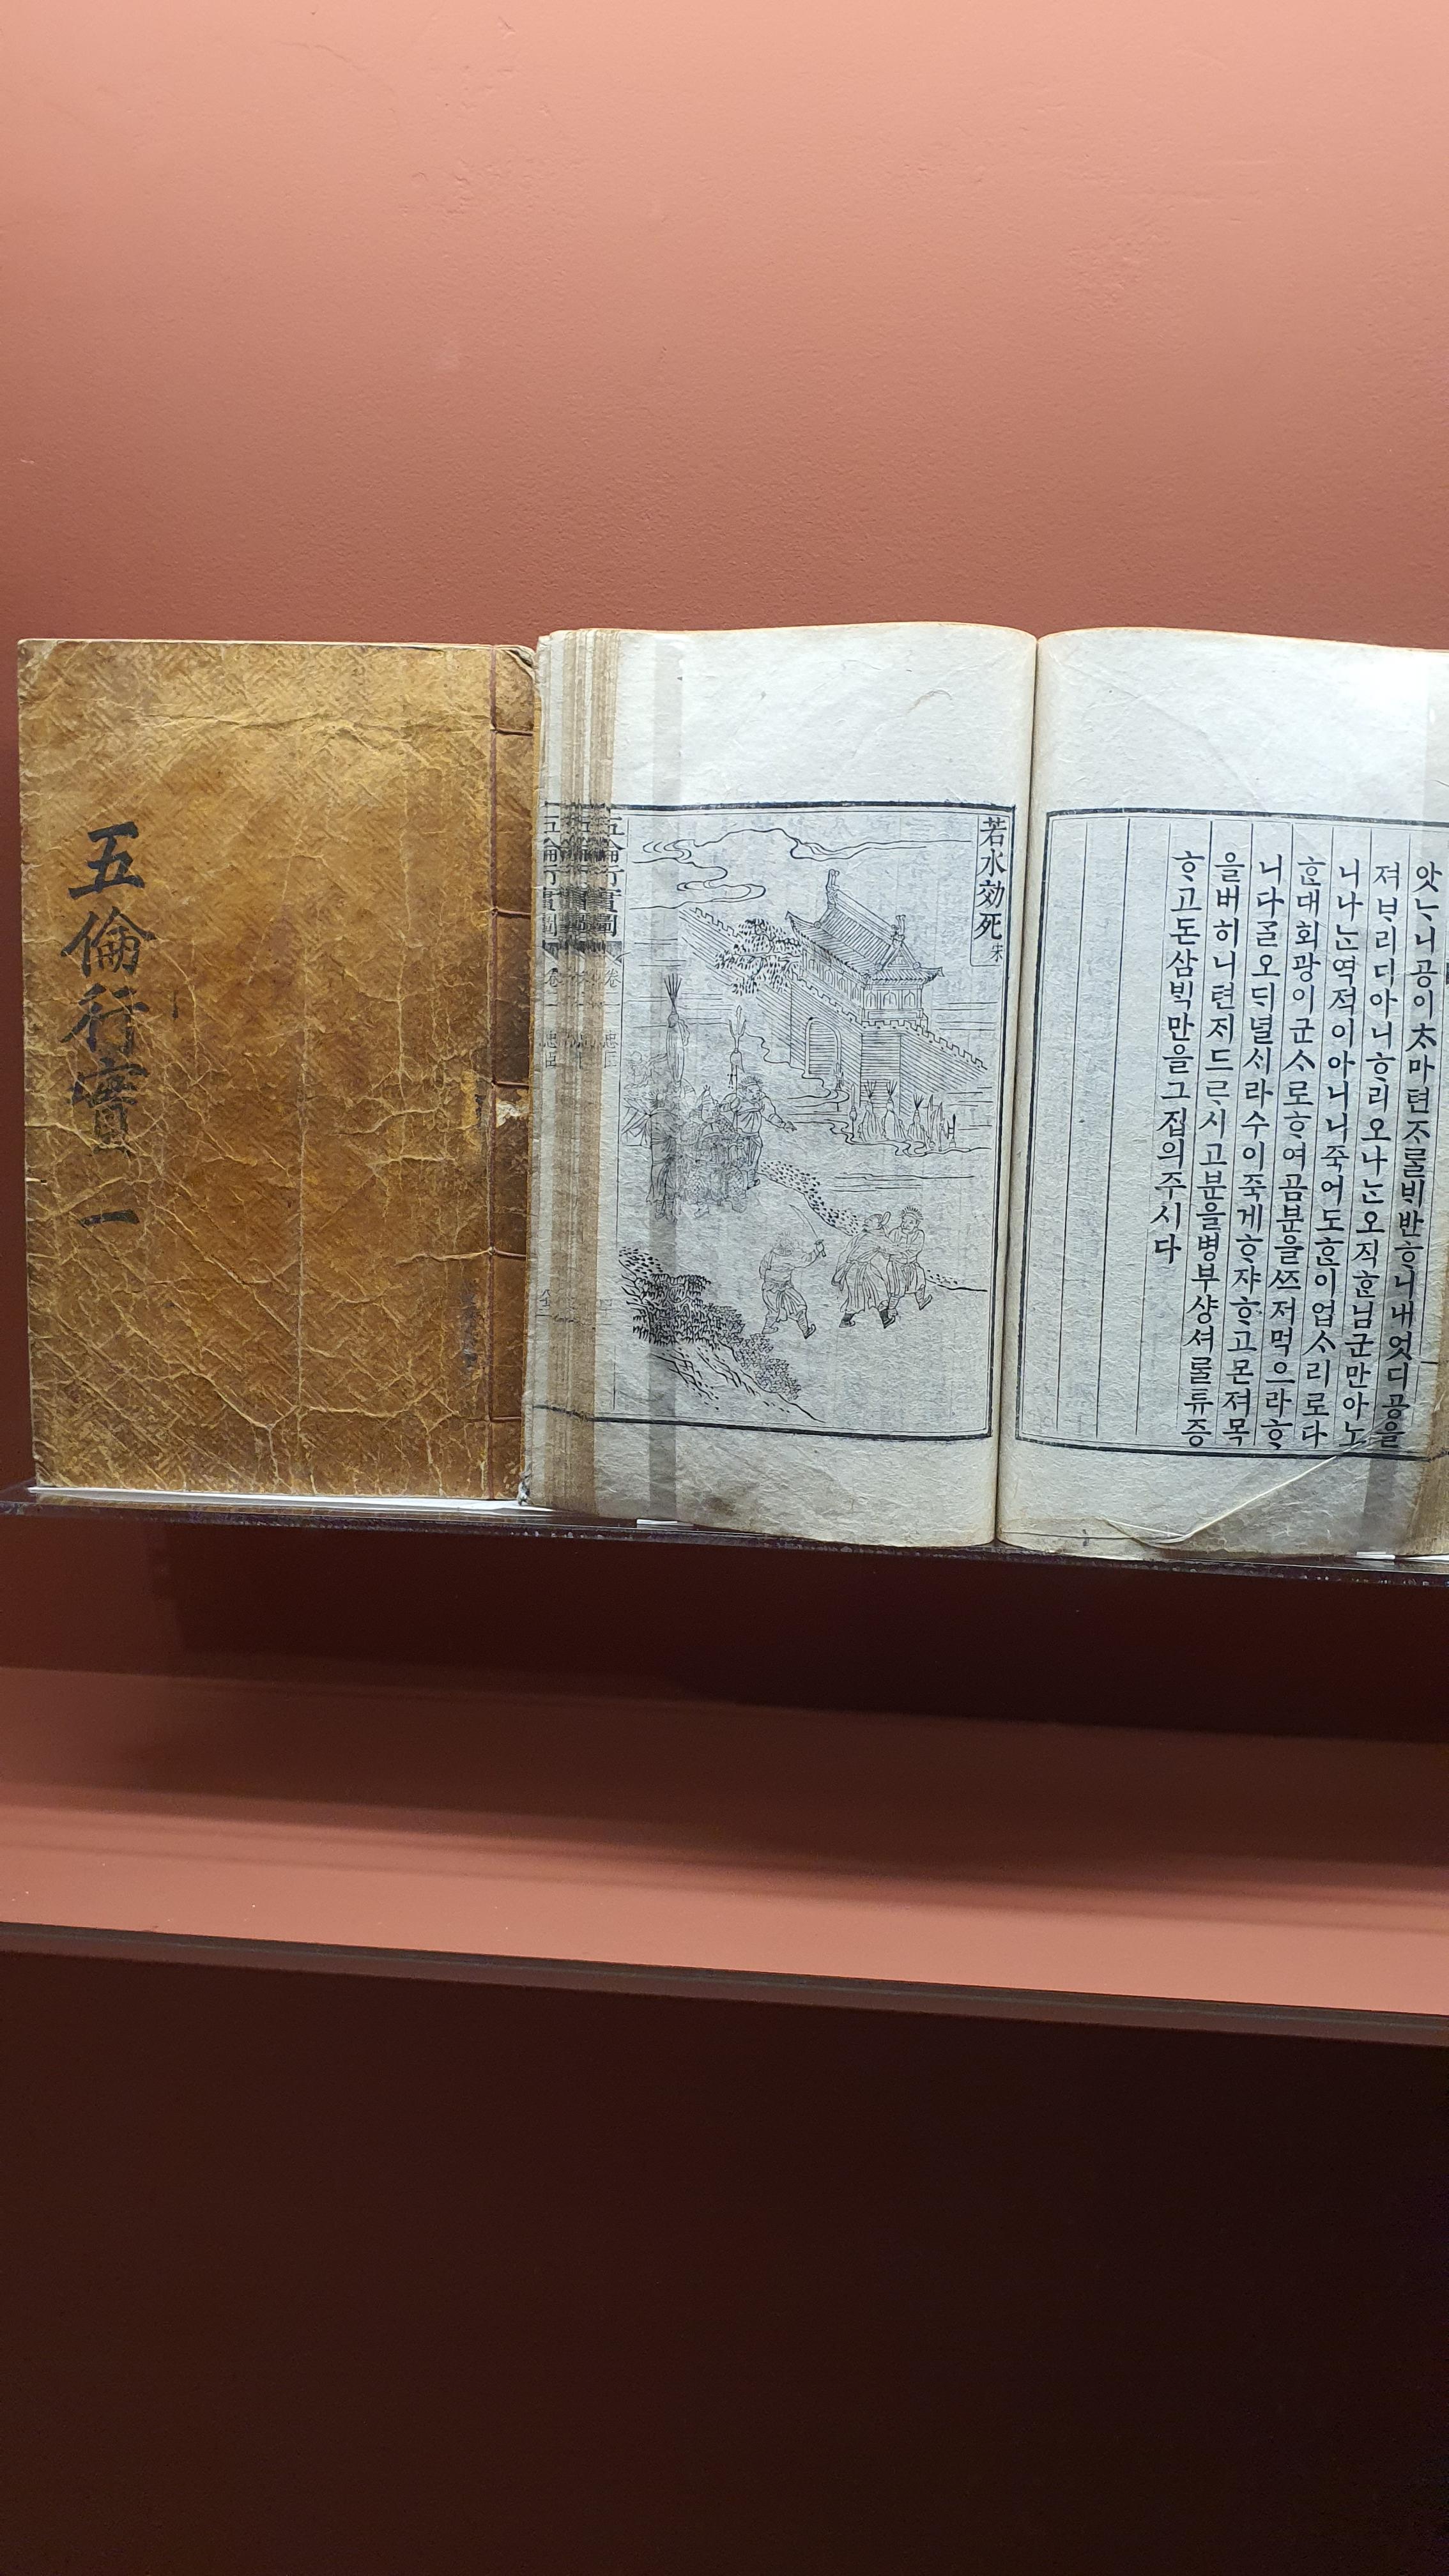 五倫行實 一
앗ᄂᆞ니공이ᄎᆞ마텬ᄌᆞᄅᆞᆯᄇᆡ반ᄒᆞ니내엇디공을
져ᄇᆞ리디아니ᄒᆞ리오나ᄂᆞᆫ오직ᄒᆞᆫ님군만아노
니나ᄂᆞᆫ역적이아니니죽어도ᄒᆞᆫ이업ᄉᆞ리로다
ᄒᆞᆫ대회광이군ᄉᆞ로ᄒᆞ여곰분을ᄧᅳ저먹으라ᄒᆞ
니다ᄀᆞᆯ오ᄃᆡ녈ᄉᆡ라수이죽게ᄒᆞ쟈ᄒᆞ고몬져목
을버히니텬ᄌᆡ드르시고분을병부샹셔ᄅᆞᆯ튜증
ᄒᆞ고돈삼ᄇᆡᆨ만을그집의주시다
若水効死 宋
五倫行實圖